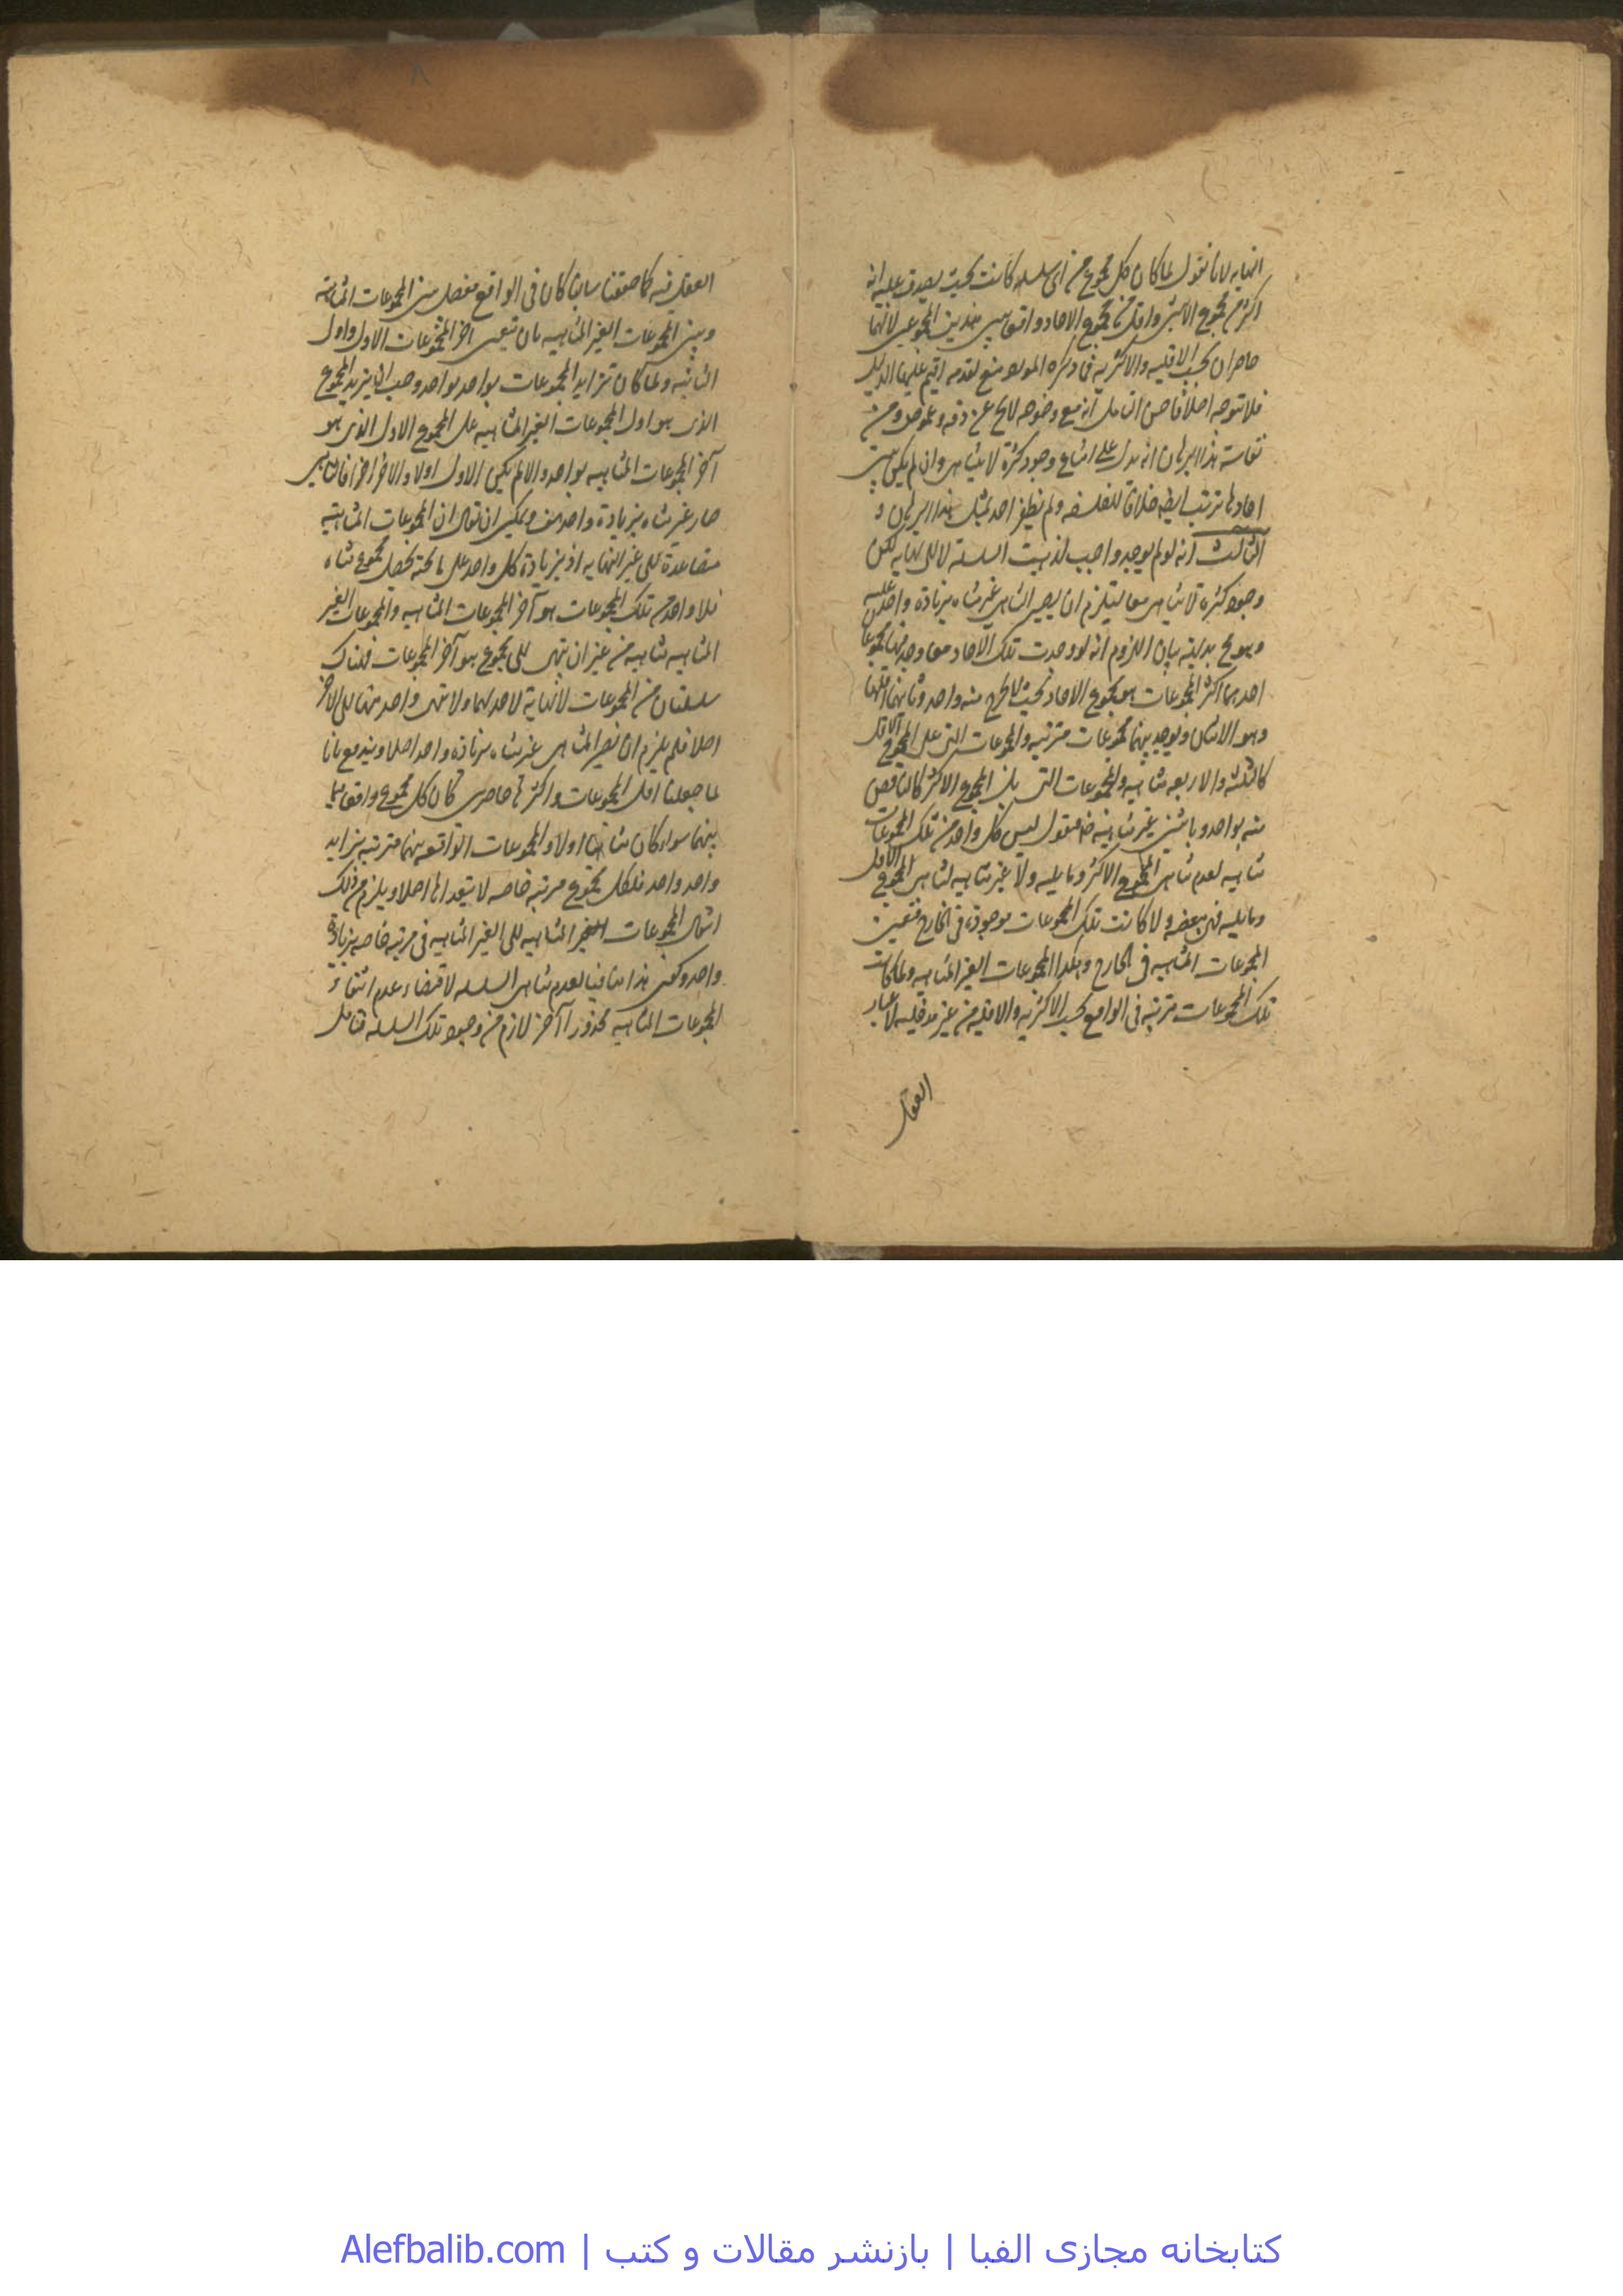 النهايه لانا نقول لما كان كل مجموع من اى سلسله كانت بحيث يصدق عليه انه
اكثر من مجموع الاثنين واقل من مجموع الاحاد واقعا بين هذين المجموعين لانهما
حاصران بحسب الاقليه والاكثريه فما ذكره المورد منع لمقدمه اقيم عليها الدليل
فلا توجه اصلا فاحسن التامل انه مع وضوحه لا يخ عن دقه وغموض ومن
نفاسة هذا البرهان انه يدل على امتناع وجود كثرة لا يتناهى وان لم يكن بين
احادها ترتب ايضا خلافا للفلسفه ولم يظفر احد بمثل هذا البرهان و
الثالث انه لو لم يوجد واجب لذهبت السلسلة لا الى نهايه لكن
وجود كثره لا يتناهى معا يستلزم ان يصير المتناهى غير متناه بزيادة واحد عليه
وهو مح بديهة بيان اللزوم انه لو وجدت تلك الاحاد معا وجد فيها مجموعا
احدهما اكثر المجموعات هو مجموع الاحاد بحيث لا يخرج منه واحد وثانيهما اقلها
وهو الاثنان ويوجد بينهما مجموعات مترتبه والمجموعات التى على المجموع الاقل
كالثلثه والاربعه متناهيه والمجموعات التى يلى المجموع الاكثر كالناقص
منه بواحد وباثنين غير متناهيه فنقول ليس كل واحد من تلك المجموعات
متناهيه لعدم تناهى المجموع الاكثر وما يليه ولا غير متناهيه لتناهى المجموع الاول
وما يليه فى بعضه ولما كانت تلك المجموعات موجودة فى الخارج فتعين
المجموعات المتناهيه فى الخارج وهكذا المجموعات الغير المتناهيه ولما كانت
تلك المجموعات مترتبه فى الواقع بحسب الاكثريه والاقليه من غير مدخليه لاعتبار
العقل
العقل فيه كما حققنا سابقا كان فى الواقع مفصل بين المجموعات المتناهية
وبين المجموعات الغير المتناهيه بان يتعين اخر المجموعات الاول واول
الثانيه ولما كان تزايد المجموعات بواحد بواحد وجب ان يزيد المجموع
الذى هو اول المجموعات الغير المتناهيه على المجموع الاول الذى هو
آخر المجموعات المتناهيه بواحد والا لم يكن الاول اولا والاخر اخرا فالمتناهى
صار غير متناه بزيادة واحد هف ويمكن ان يقال ان المجموعات المتناهيه
متصاعدة الى غير النهايه اذ بزيادة كل واحد على ما تحته يحصل مجموع متناه
فلا واحد من تلك المجموعات هو آخر المجموعات المتناهيه والمجموعات الغير
المتناهيه متناهيه من غير ان ينتهى الى مجموع هو آخر المجموعات فهناك
سلسلتان من المجموعات لا نهاية لاحدهما ولا ينتهى واحد منهما الى الاخر
اصلا فلم يلزم ان يصير المتناهى غير متناه بزيادة واحد اصلا ويندفع بانا
لما جعلنا اقل المجموعات واكثرها حاصرين كان كل مجموع واقعا فيما
بينهما سواء كان متناهيا اولا والمجموعات الواقعه بينهما مترتبه بتزايد
واحد واحد فلكل مجموع مرتبه خاصه لا يتعداها اصلا ويلزم من ذلك
انتهاء المجموعات الغير المتناهيه الى الغير المتناهيه فى مرتبه خاصه بزيادة
واحد وكون هذا منافيا لعدم تناهى السلسله لاقتضاء عدم انتهاء
المجموعات المتناهيه محذورا آخر لازم من وجود تلك السلسله فتامل
کتابخانه مجازی الفبا | بازنشر مقالات و کتب | Alefbalib.com